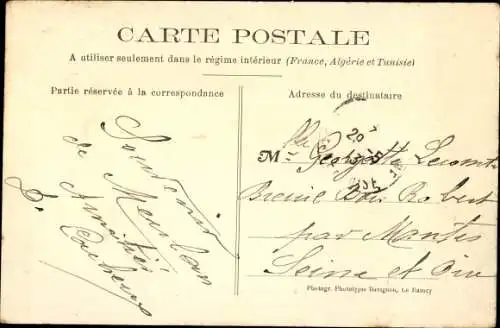 CARTE POSTALE
A utiliser seulement dans le régime intérieur (France, Algérie et Tunisie)
Partie réservée à la correspondance
Adresse du destinataire
Souvenir
de Meulan
Amitiés
M Georgette Lecomte
Breuil Bois Robert
par Mantes
Seine et Oise
Photogr. Phototypie Thévignon, Le Raincy